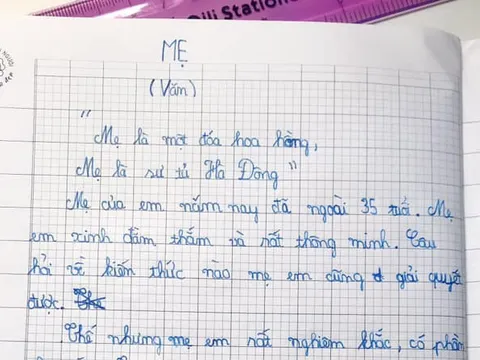 Olli Station
MẸ
(Văn)
"
Mẹ là một đóa hoa hồng,
Mẹ là sư tử Hà Đông"
Mẹ của em năm nay đã ngoài 35 tuổi. Mẹ
em xinh đằm thắm và rất thông minh. Câu
hỏi về kiến thức nào mẹ em cũng giải quyết
được.
Thế nhưng mẹ em rất nghiêm khắc, có phần